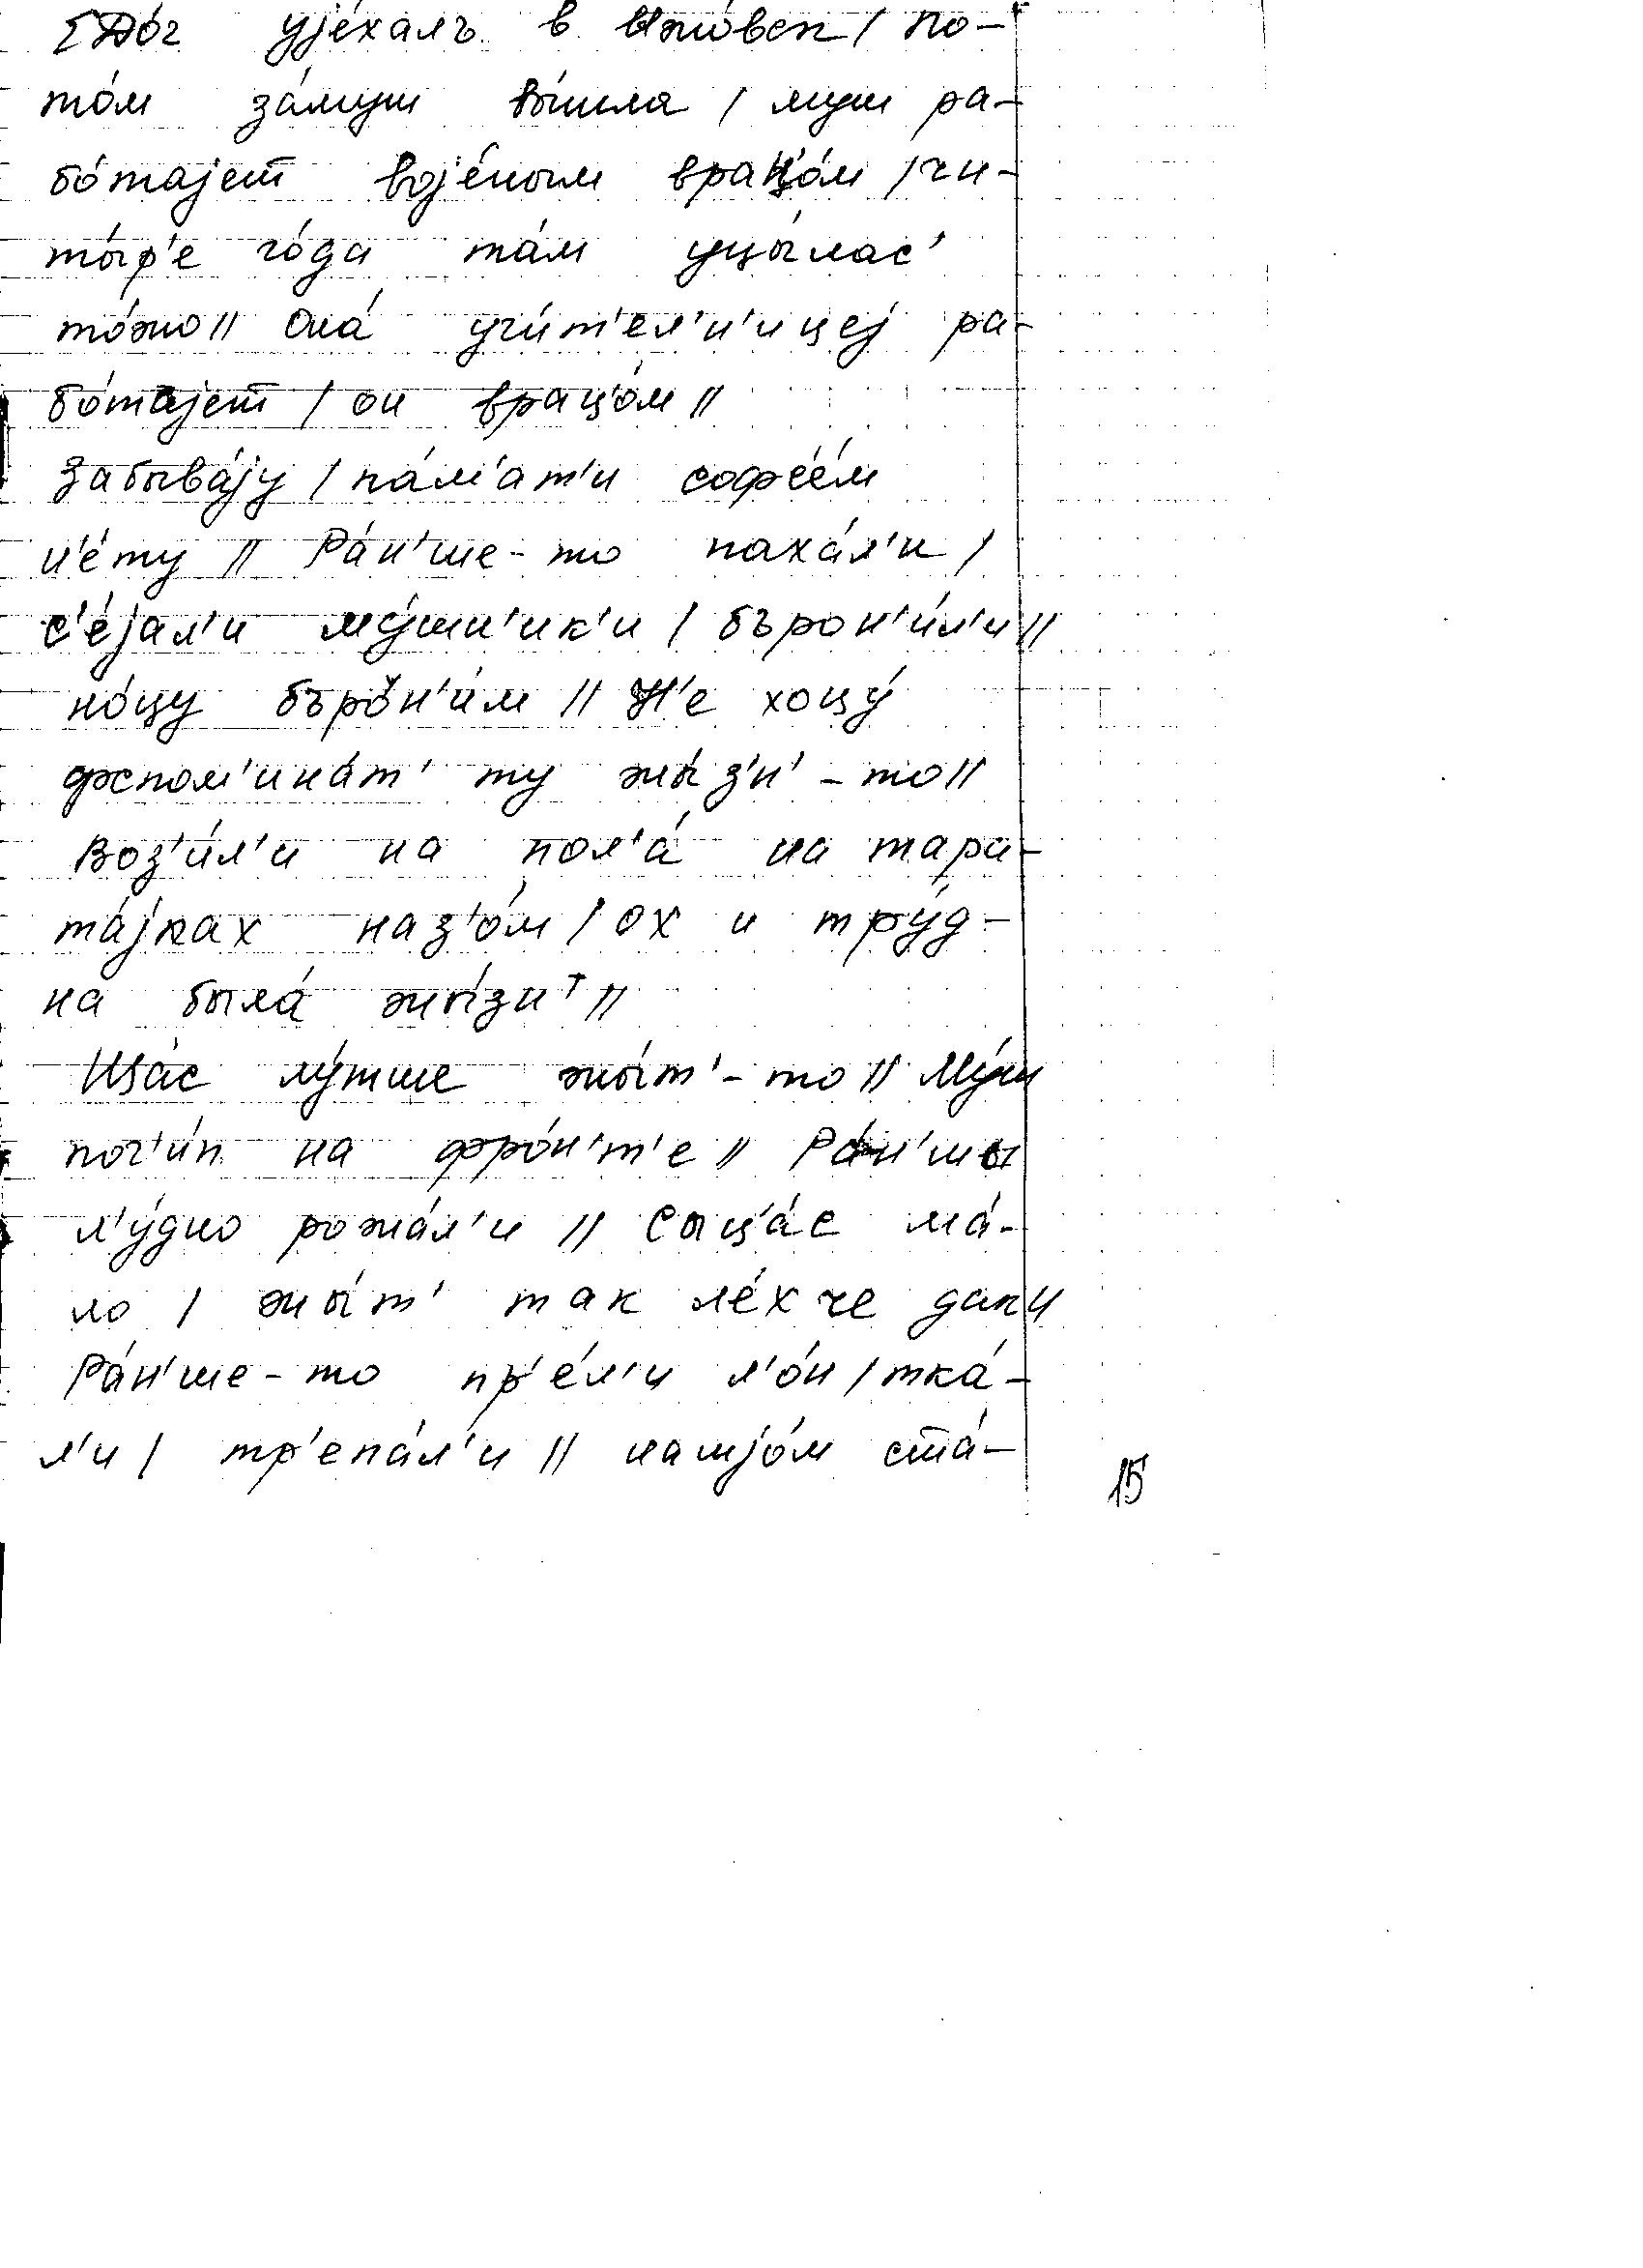 [До́г ујéхалъ в Ыжо́вск / по-
то́м за́муш вы́шла / муш ра-
бо́тајет војéным врац'о́м / чи-
ты́р'е го́да та́м уцы́лас'
то́жо // Она́ учи́т'ел'н'ицеј ра-
бо́тајет / он врац'о́м //
Забыва́ју / па́м'ат'и софсéм
н'éту // Ра́н'ше-то паха́л'и /
с'éјал'и му́шш'ик'и / бърон'и́л'и //
но́цу бърон'и́м // Н'е хоцу́
фспом'ина́т' ту жы́з'н'-то //
Воз'и́л'и на пол'а́ на тара-
та́јках наз'о́м / ох и тру́д-
на была́ жы́зн' //
Щас лу́тше жы́т'-то // Му́ш
пог'и́п на фро́н'т'е // Ра́н'шы
л'у́дно рожа́л'и // Сыц'а́с ма́-
ло / жы́т' так лéхче дак //
Ра́н'ше-то пр'éл'и л'о́н / тка́-
л'и / тр'епа́л'и // нашјо́м ста́-
15